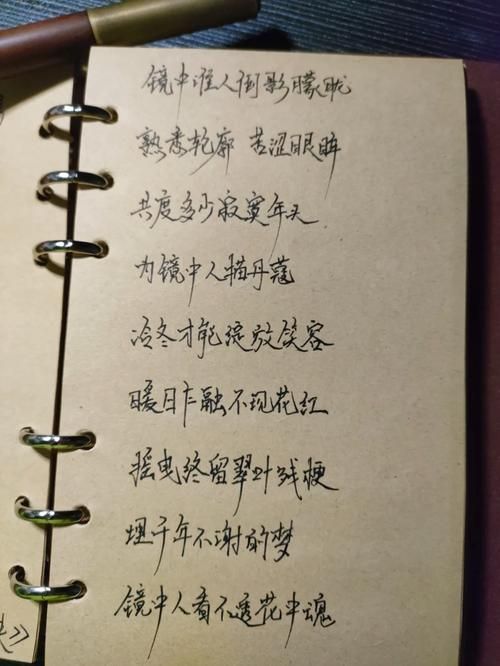 镜中谁人倒影朦胧
熟悉轮廓 苦涩眼眸
共度多少寂寞年头
为镜中人描丹蔻
冷冬才能绽放笑容
暖日乍融不现花红
摇曳终留翠叶残梗
埋千年不谢的梦
镜中人看不透花中魂
》